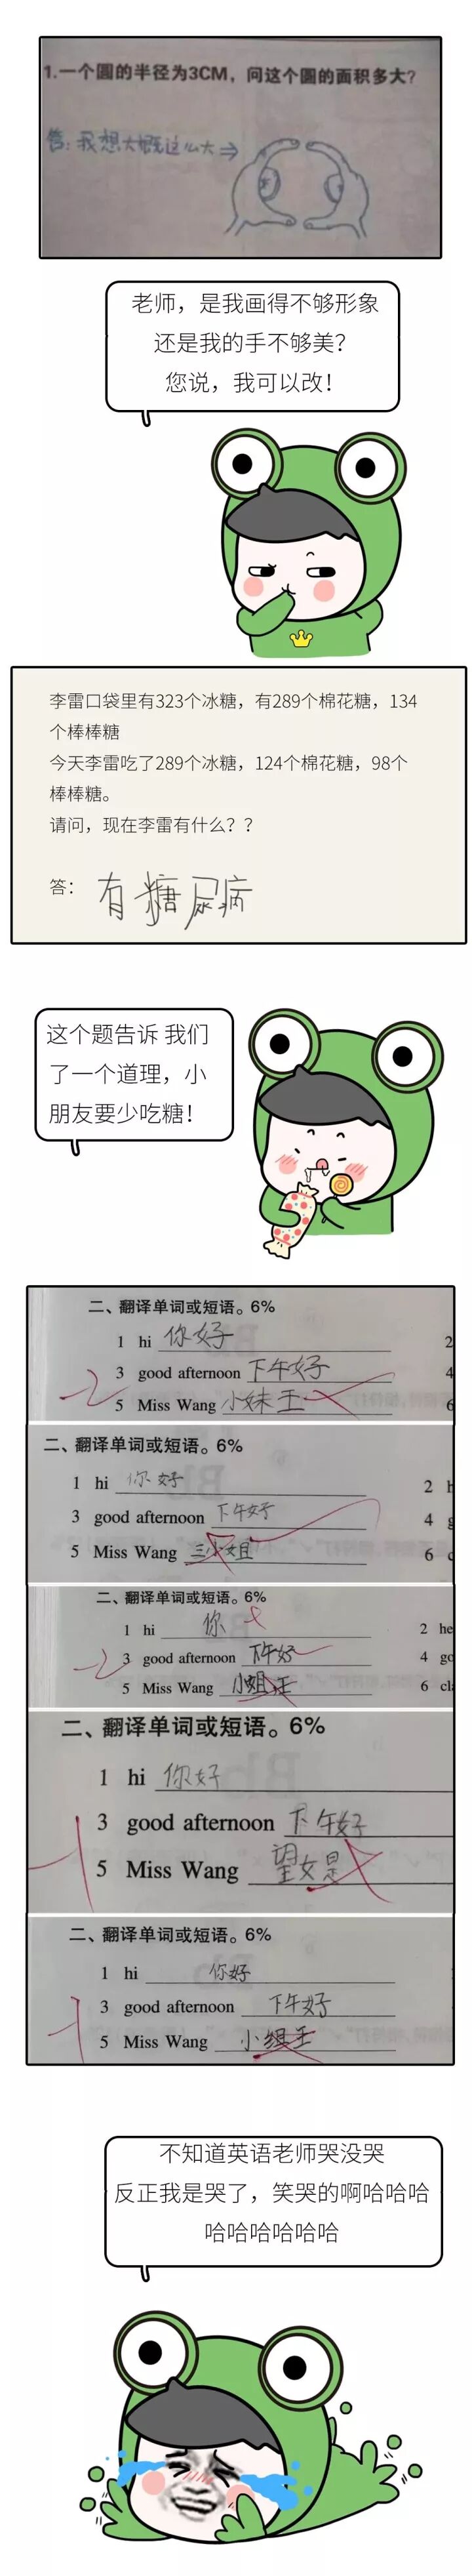 1.一个圆的半径为3CM，问这个圆的面积多大？
答：我想大概这么大⇒
老师，是我画得不够形象
还是我的手不够美？
您说，我可以改！
李雷口袋里有323个冰糖，有289个棉花糖，134
个棒棒糖
今天李雷吃了289个冰糖，124个棉花糖，98个
棒棒糖。
请问，现在李雷有什么？？
答： 有糖尿病
这个题告诉 我们
了一个道理，小
朋友要少吃糖！
二、翻译单词或短语。6%
1 hi 你好 2
3 good afternoon 下午好 4
5 Miss Wang 小妹王 6
二、翻译单词或短语。6%
1 hi 你好 2 h
3 good afternoon 下午好 4 g
5 Miss Wang 三小姐 6 c
二、翻译单词或短语。6%
1 hi 你 2 he
3 good afternoon 下午好 4 go
5 Miss Wang 小姐王 6 cl
二、翻译单词或短语。6%
1 hi 你好
3 good afternoon 下午好
5 Miss Wang 望女是
二、翻译单词或短语。6%
1 hi 你好
3 good afternoon 下午好
5 Miss Wang 小组王
不知道英语老师哭没哭
反正我是哭了，笑哭的啊哈哈哈
哈哈哈哈哈哈